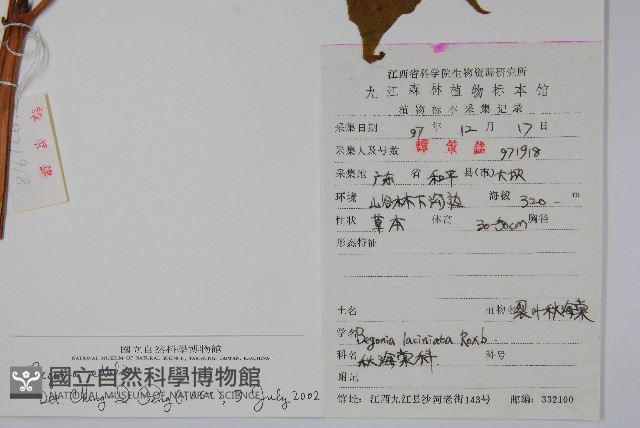 971918
江西省科学院生物资源研究所
九江森林植物标本馆
植物标本采集记录
采集日期 97 年 12 月 17 日
采集人及号数 譚策銘 971918
采集地 广东 省 和平 县(市) 大坝
环境 山谷林下沟边 海拔 320 m
性状 草本 体高 30-50cm 胸径
形态特征
土名 植物名 裂叶秋海棠
学名 Begonia laciniata Roxb.
科名 秋海棠科 科号
附记
馆址: 江西九江县沙河老街143号 邮编: 332100
國立自然科學博物館
NATIONAL MUSEUM OF NATURAL SCIENCE, TAICHUNG, TAIWAN, R.O.CHINA
國立自然科學博物館
NATIONAL MUSEUM OF NATURAL SCIENCE
July 2002